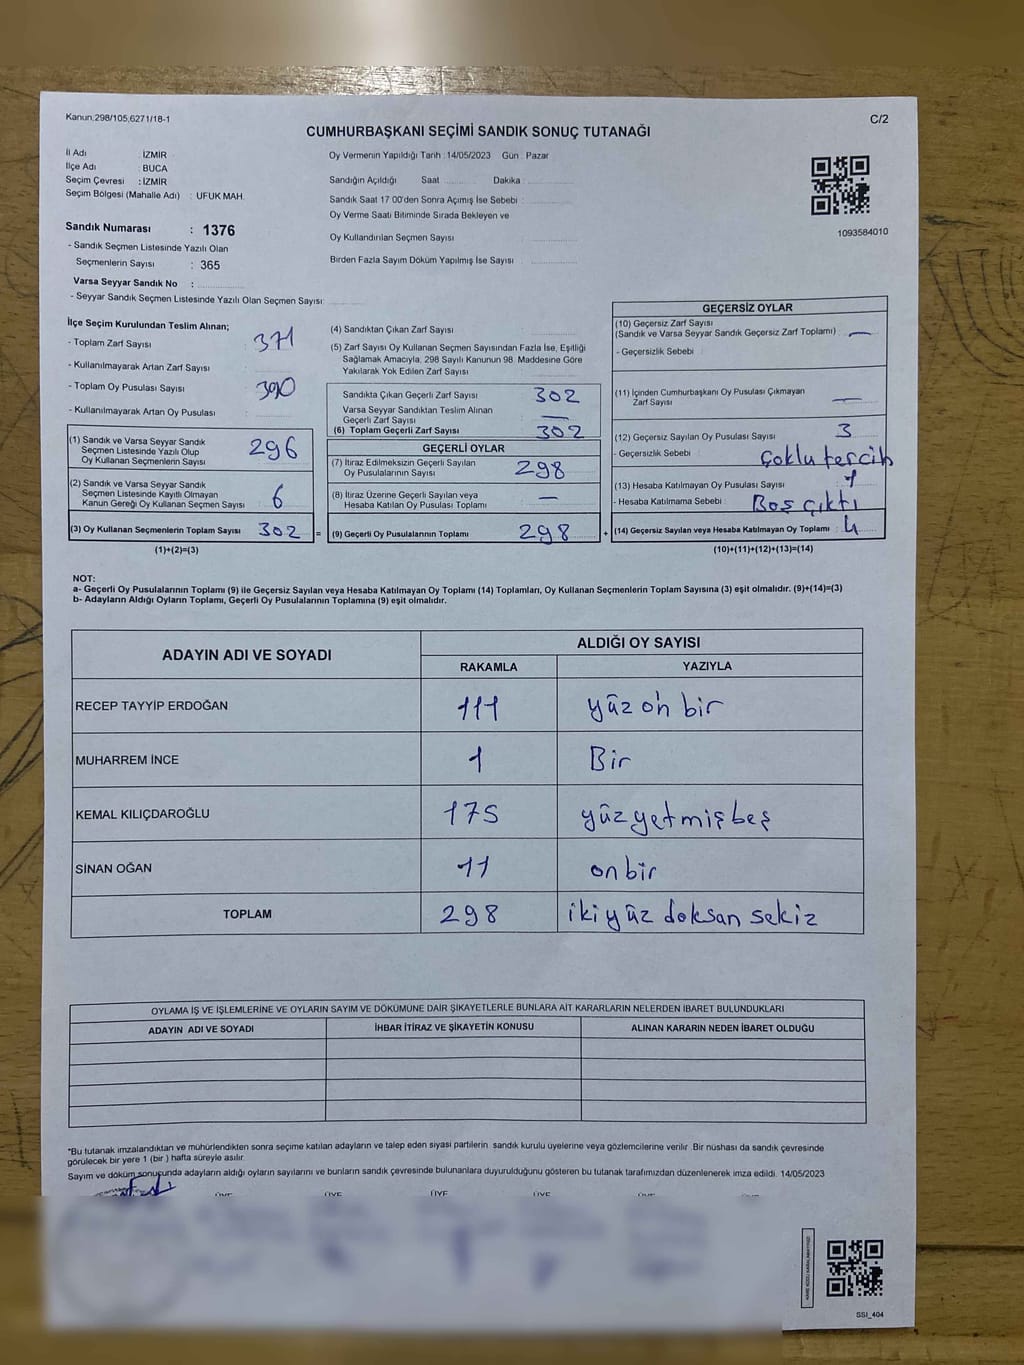 Kanun;298/105;6271/18-1
C/2
CUMHURBAŞKANI SEÇİMİ SANDIK SONUÇ TUTANAĞI
İl Adı : İZMİR
İlçe Adı : BUCA
Seçim Çevresi : İZMİR
Seçim Bölgesi (Mahalle Adı) : UFUK MAH.
Sandık Numarası : 1376
- Sandık Seçmen Listesinde Yazılı Olan
Seçmenlerin Sayısı : 365
Varsa Seyyar Sandık No :
- Seyyar Sandık Seçmen Listesinde Yazılı Olan Seçmen Sayısı:
Oy Vermenin Yapıldığı Tarih : 14/05/2023 Gün : Pazar
Sandığın Açıldığı Saat Dakika :
Sandık Saat 17:00'den Sonra Açımış İse Sebebi :
Oy Verme Saati Bitiminde Sırada Bekleyen ve
Oy Kullandırılan Seçmen Sayısı
Birden Fazla Sayım Döküm Yapılmış İse Sayısı :
1093584010
İlçe Seçim Kurulundan Teslim Alınan;
- Toplam Zarf Sayısı 371
- Kullanılmayarak Artan Zarf Sayısı
- Toplam Oy Pusulası Sayısı 390
- Kullanılmayarak Artan Oy Pusulası
(1) Sandık ve Varsa Seyyar Sandık
Seçmen Listesinde Yazılı Olup
Oy Kullanan Seçmenlerin Sayısı 296
(2) Sandık ve Varsa Seyyar Sandık
Seçmen Listesinde Kayıtlı Olmayan
Kanun Gereği Oy Kullanan Seçmen Sayısı 6
(3) Oy Kullanan Seçmenlerin Toplam Sayısı 302 =
(1)+(2)=(3)
(4) Sandıktan Çıkan Zarf Sayısı
(5) Zarf Sayısı Oy Kullanan Seçmen Sayısından Fazla İse, Eşitliği
Sağlamak Amacıyla, 298 Sayılı Kanunun 98. Maddesine Göre
Yakılarak Yok Edilen Zarf Sayısı
Sandıkta Çıkan Geçerli Zarf Sayısı 302
Varsa Seyyar Sandıktan Teslim Alınan
Geçerli Zarf Sayısı —
(6) Toplam Geçerli Zarf Sayısı 302
GEÇERLİ OYLAR
(7) İtiraz Edilmeksizin Geçerli Sayılan
Oy Pusulalarının Sayısı 298
(8) İtiraz Üzerine Geçerli Sayılan veya
Hesaba Katılan Oy Pusulası Toplamı —
(9) Geçerli Oy Pusulalarının Toplamı 298 +
GEÇERSİZ OYLAR
(10) Geçersiz Zarf Sayısı
(Sandık ve Varsa Seyyar Sandık Geçersiz Zarf Toplamı) —
- Geçersizlik Sebebi
(11) İçinden Cumhurbaşkanı Oy Pusulası Çıkmayan
Zarf Sayısı —
(12) Geçersiz Sayılan Oy Pusulası Sayısı 3
- Geçersizlik Sebebi : Çoklu tercih
(13) Hesaba Katılmayan Oy Pusulası Sayısı : 1
- Hesaba Katılmama Sebebi : Boş çıktı
(14) Geçersiz Sayılan veya Hesaba Katılmayan Oy Toplamı : 4
(10)+(11)+(12)+(13)=(14)
NOT:
a- Geçerli Oy Pusulalarının Toplamı (9) ile Geçersiz Sayılan veya Hesaba Katılmayan Oy Toplamı (14) Toplamları, Oy Kullanan Seçmenlerin Toplam Sayısına (3) eşit olmalıdır. (9)+(14)=(3)
b- Adayların Aldığı Oyların Toplamı, Geçerli Oy Pusulalarının Toplamına (9) eşit olmalıdır.
ADAYIN ADI VE SOYADI ALDIĞI OY SAYISI
RAKAMLA YAZIYLA
RECEP TAYYİP ERDOĞAN 111 yüz on bir
MUHARREM İNCE 1 Bir
KEMAL KILIÇDAROĞLU 175 yüzyetmişbeş
SİNAN OĞAN 11 on bir
TOPLAM 298 iki yüz doksan sekiz
OYLAMA İŞ VE İŞLEMLERİNE VE OYLARIN SAYIM VE DÖKÜMÜNE DAİR ŞİKAYETLERLE BUNLARA AİT KARARLARIN NELERDEN İBARET BULUNDUKLARI
ADAYIN ADI VE SOYADI İHBAR İTİRAZ VE ŞİKAYETİN KONUSU ALINAN KARARIN NEDEN İBARET OLDUĞU
*Bu tutanak imzalandıktan ve mühürlendikten sonra seçime katılan adayların ve talep eden siyasi partilerin sandık kurulu üyelerine veya gözlemcilerine verilir. Bir nüshası da sandık çevresinde
görülecek bir yere 1 (bir ) hafta süreyle asılır.
Sayım ve döküm sonucunda adayların aldığı oyların sayılarını ve bunların sandık çevresinde bulunanlara duyurulduğunu gösteren bu tutanak tarafımızdan düzenlenerek imza edildi. 14/05/2023
ÜYE ÜYE ÜYE ÜYE ÜYE
SSI_404